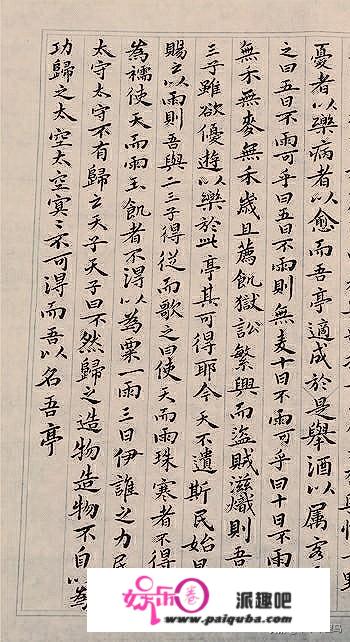 憂者以樂病者以愈而吾亭適成於是舉酒以屬客
之曰五日不雨可乎曰五日不雨則無麦十日不雨可乎曰十日不雨
無禾無麥無禾歲且薦飢獄訟繁興而盜賊滋熾則吾
三子雖欲優遊以樂於此亭其可得耶今天不遺斯民始旱
賜之以雨則吾與二三子得從而歌之曰使天而雨珠寒者不得
為襦使天而雨玉飢者不得以為粟一雨三日伊誰之力民
太守太守不有歸之天子天子曰不然歸之造物造物不自以為
功歸之太空太空冥〻不可得而吾以名吾亭
娱乐卷 派趣吧
www.paiquba.com